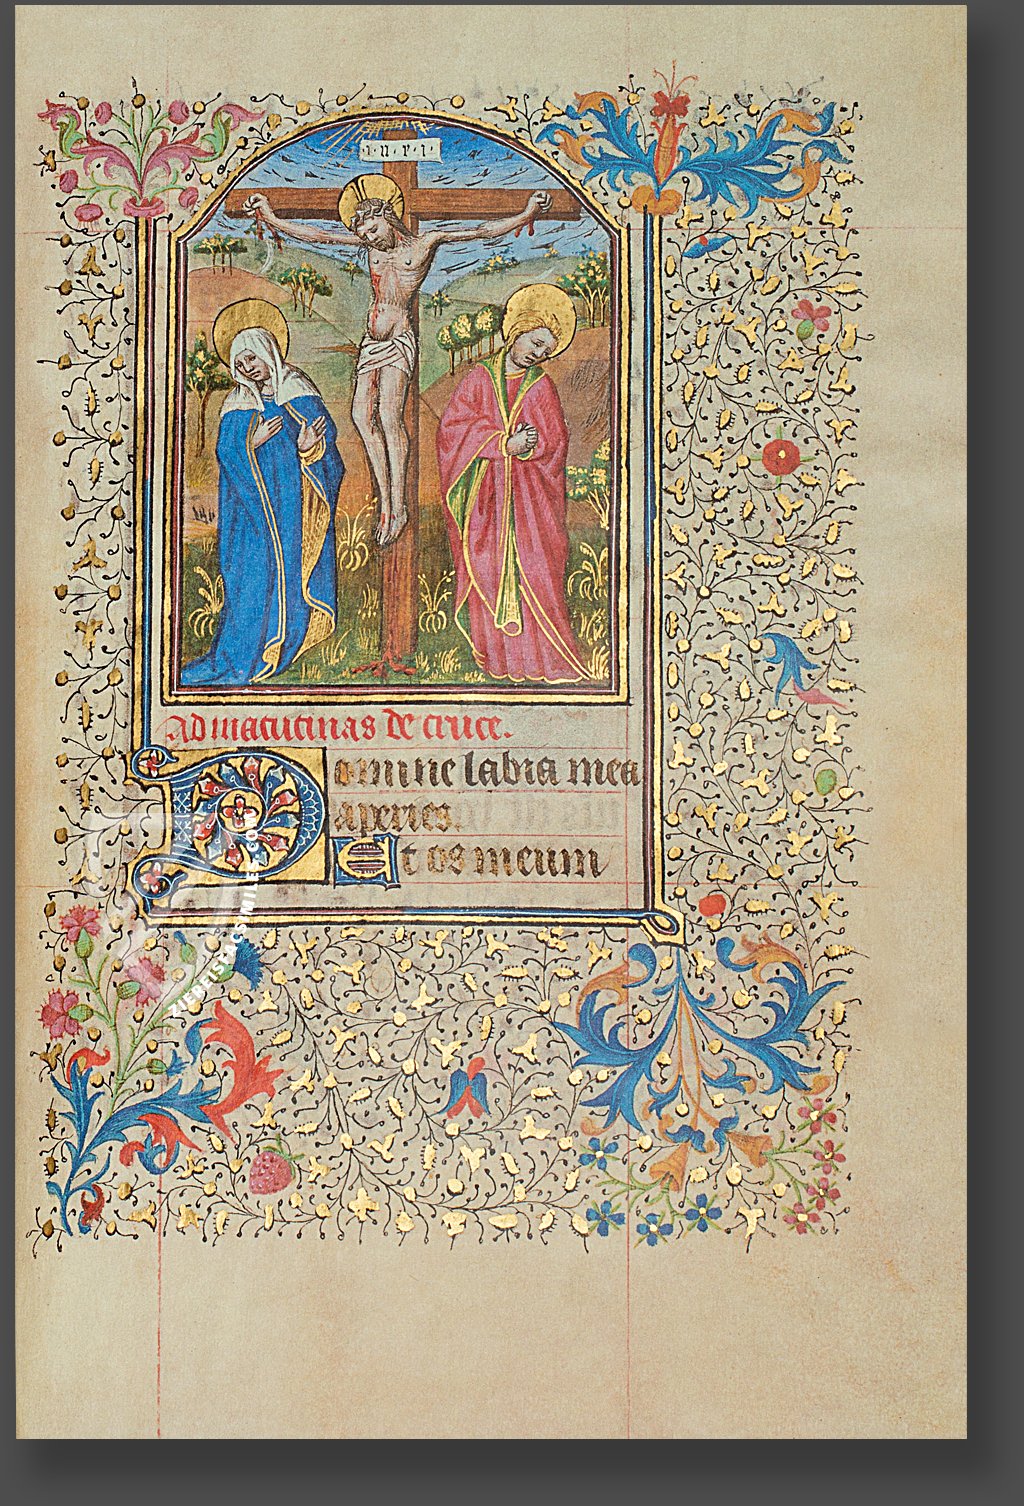 ·i·n·r·i·
Ad matutinas de cruce.
Domine labia mea
aperies.
Et os meum
ZIEREIS FACSIMILES